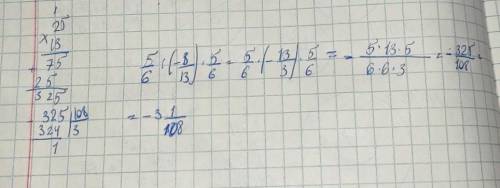 1
25
× 13
75
25
325
325 | 108
324 | 3
1
5/6 : (-8/13) · 5/6 = 5/6 · (-13/3) · 5/6 = = - 5·13·5/6·6·3 = -325/108 =
= -3 1/108